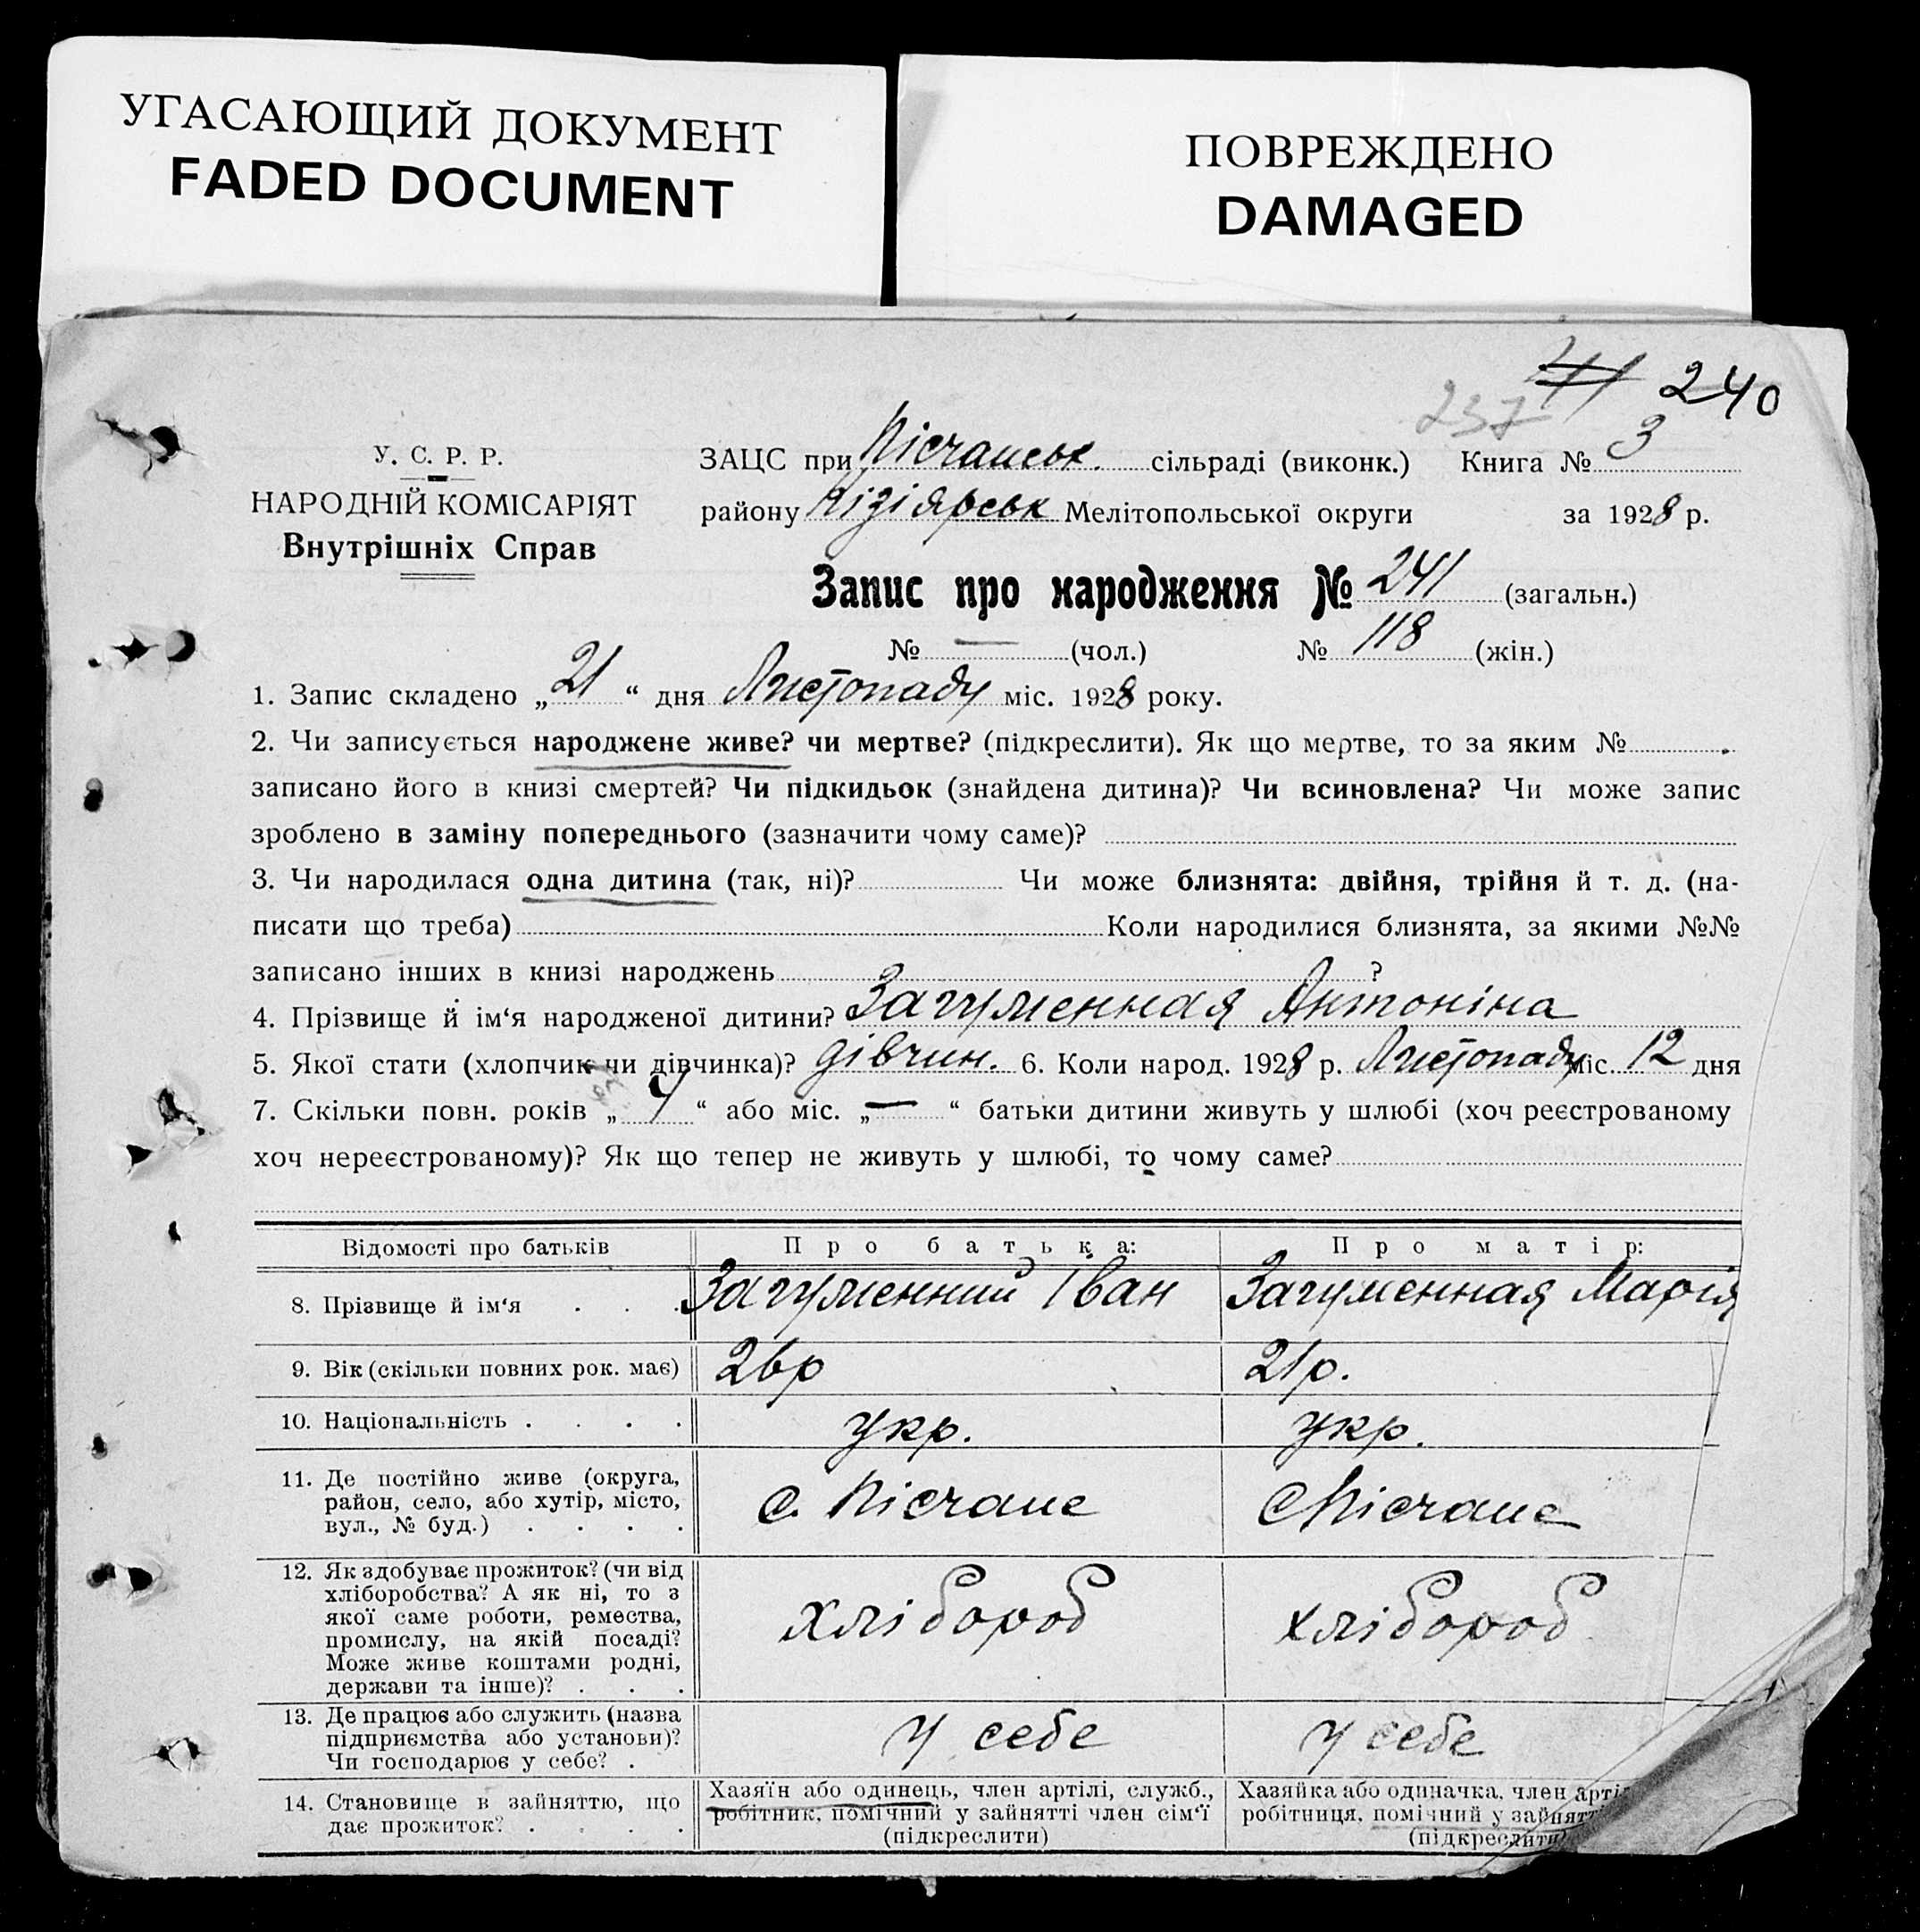 УГАСАЮЩИЙ ДОКУМЕНТ
FADED DOCUMENT
ПОВРЕЖДЕНО
DAMAGED
240
237
У. С. Р. Р.
НАРОДНІЙ КОМІСАРІЯТ
Внутрішніх Справ
ЗАЦС при Пісчанськ. сільраді (виконк.) Книга № 3
району Кізіярськ Мелітопольської округи за 1928 р.
Запис про народження № 241 (загальн.)
№ — (чол.) № 118 (жін.)
1. Запис складено „ 21 “ дня Листопаду міс. 1928 року.
2. Чи записується народжене живе? чи мертве? (підкреслити). Як що мертве, то за яким №
записано його в книзі смертей? Чи підкидьок (знайдена дитина)? Чи всиновлена? Чи може запис
зроблено в заміну попереднього (зазначити чому саме)?
3. Чи народилася одна дитина (так, ні)? Чи може близнята: двійня, трійня й т. д. (на-
писати що треба) Коли народилися близнята, за якими №№
записано інших в книзі народжень ?
4. Прізвище й ім‘я народженої дитини? Загуменная Антоніна
5. Якої стати (хлопчик чи дівчинка)? дівчин. 6. Коли народ. 1928 р. Листопаду міс. 12 дня
7. Скільки повн. років „ 4 “ або міс. „ — “ батьки дитини живуть у шлюбі (хоч реєстрованому
хоч нереєстрованому)? Як що тепер не живуть у шлюбі, то чому саме?
Відомості про батьків Про батька: Про матір:
8. Прізвище й ім‘я . . . Загуменний Іван Загуменная Марія
9. Вік (скільки повних рок. має) 26р 21р.
10. Національність . . . . укр. укр.
11. Де постійно живе (округа,
район, село, або хутір, місто,
вул., № буд.) . . . .
с. Пісчане с Пісчане
12. Як здобуває прожиток? (чи від
хліборобства? А як ні, то з
якої саме роботи, ремества,
промислу, на якій посаді?
Може живе коштами родні,
держави та інше)? . . .
хлібороб хлібороб
13. Де працює або служить (назва
підприємства або установи)?
Чи господарює у себе? .
у себе у себе
14. Становище в зайняттю, що
дає прожиток? . . . .
Хазяїн або одинець, член артілі, служб.,
робітник, помічний у зайнятті член сім‘ї
(підкреслити)
Хазяйка або одиначка, член арті
робітниця, помічний у зайнятті
(підкреслити)